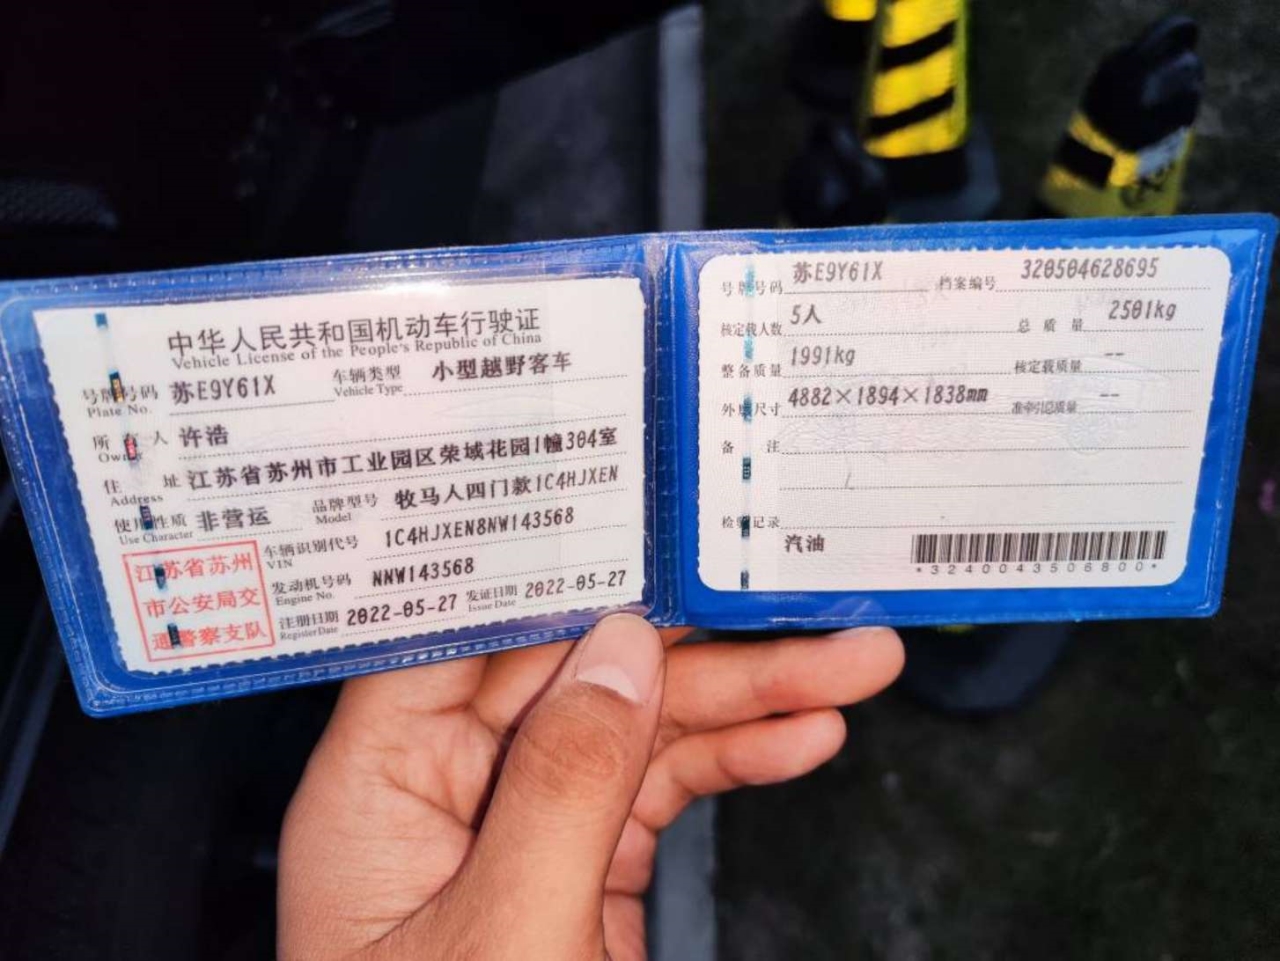 中华人民共和国机动车行驶证
Vehicle License of the People's Republic of China
号牌号码 苏E9Y61X 车辆类型 小型越野客车
Plate No. Vehicle Type
所有人 许浩
Owner
住址 江苏省苏州市工业园区荣域花园1幢304室
Address
使用性质 非营运 品牌型号 牧马人四门款1C4HJXEN
Use Character Model
江苏省苏州
市公安局交
通警察支队
车辆识别代号 1C4HJXEN8NW143568
VIN
发动机号码 NNW143568
Engine No.
注册日期 2022-05-27 发证日期 2022-05-27
Register Date Issue Date
号牌号码 苏E9Y61X 档案编号 320504628695
核定载人数 5人 总质量 2501kg
整备质量 1991kg 核定载质量 --
外廓尺寸 4882×1894×1838mm 准牵引总质量 --
备注
检验记录
汽油
*3240043506800*